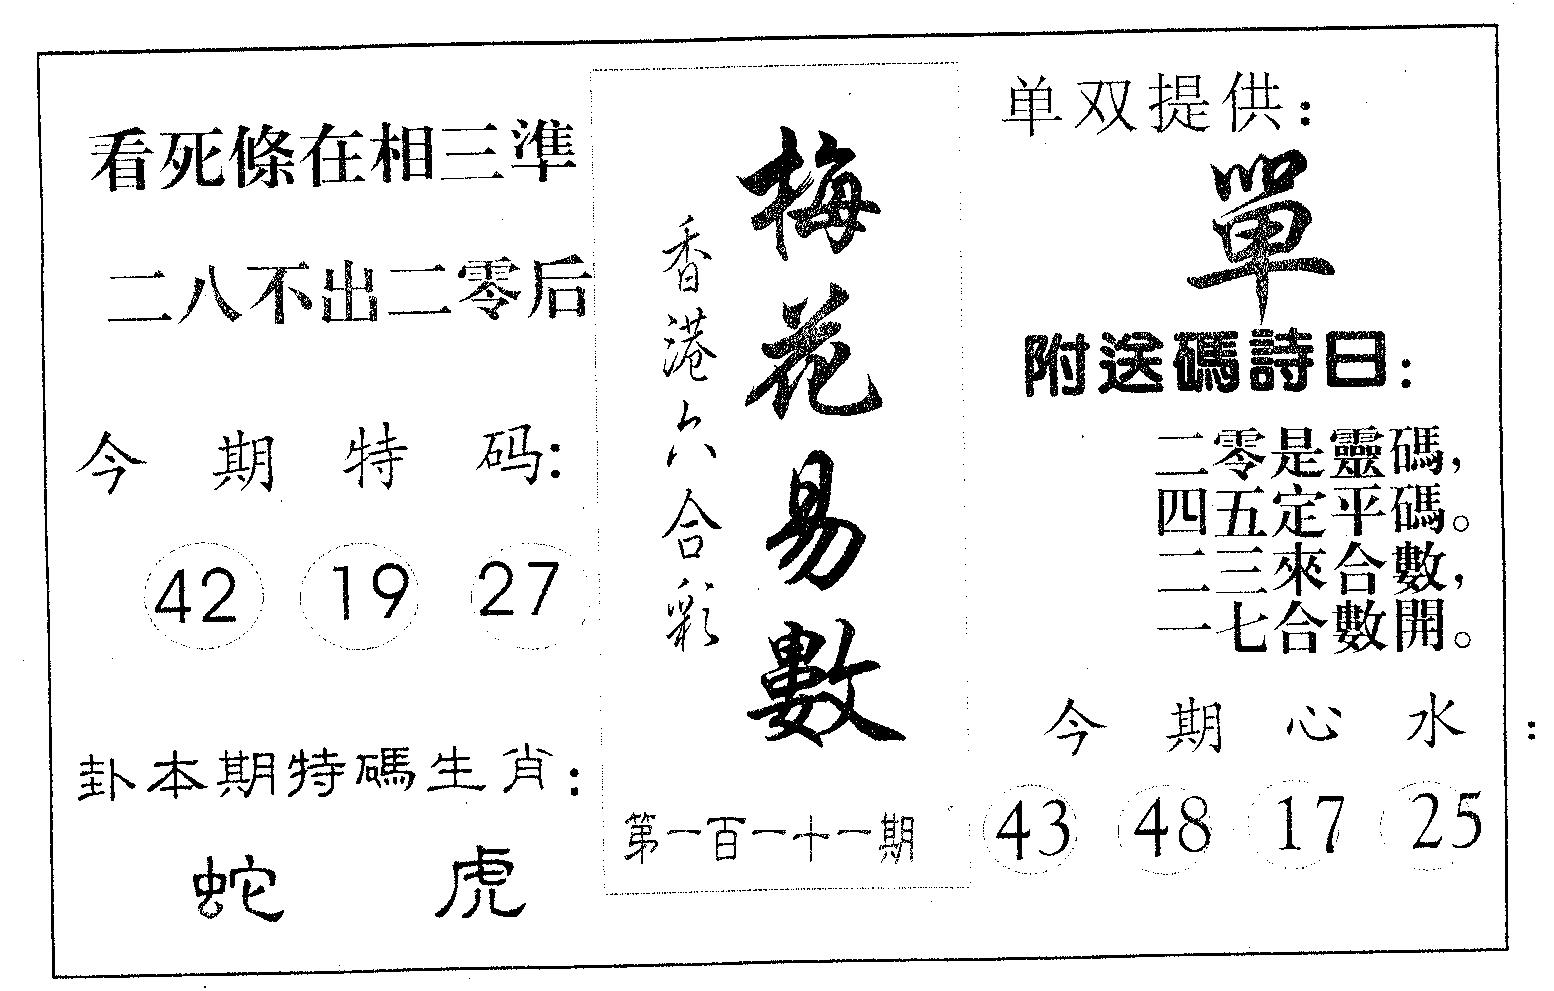 看死條在相三準
二八不出二零后
今期特码:
42 19 27
卦本期特碼生肖:
蛇 虎
梅花易數
香港六合彩
第一百一十一期
单双提供:
單
附送碼詩曰:
二零是靈碼,
四五定平碼。
二三來合數,
一七合數開。
今期心水:
43 48 17 25